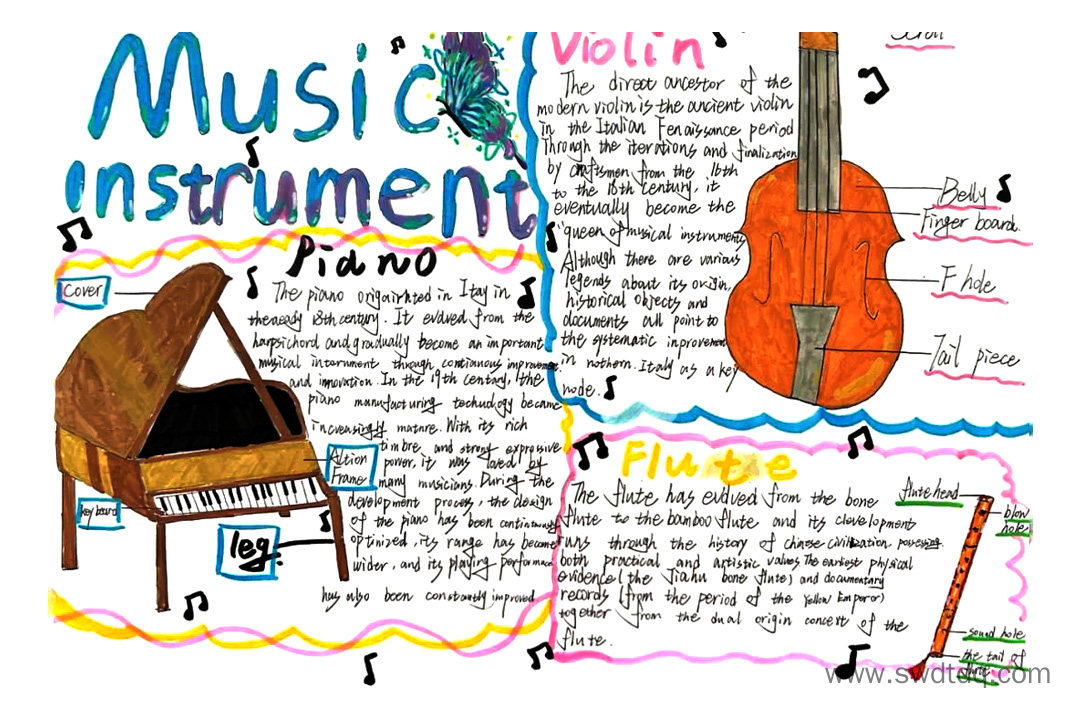 Music
instrument
Piano
cover
The piano origairhted in Itay in
the aeady 18th century. It edved from the
harpsichord and gradually become an important
musical intorument through continuous improvement
and innovation. In the 19th century, the
piano manufacturing techudogy became
increasingly mature. With its rich
timbre and strong expressive
power, it was loved by
many musicians. During the
development process, the design
of the piano has been continuously
optinized, its range has become
wider, and its playing performance
has also been constantly improved
Altion
Frame
key board
leg
Violin
The direct ancestor of the
modern violin is the ancient violin
in the Italian Fenaissance period
Through the iterations and finalization
by craftsmen from the 16th
to the 18th century, it
eventually become the
"queen of musical instruments
Although there are various
legends about its origin,
historical objects and
documents all point to
the systematic inprovement
in nothern Italy as a key
node.
Belly
Finger board.
F hole
Tail piece
Flute
The flute has evdved from the bone
flute to the bamboo flute and its clevelopments
runs through the history of chinese civilization, possessing
both practical and artistic values The earliest physical
evidence (the Jiahu bone flute) and documentary
records (from the period of the Yellow Emporor)
together from the dual origin concert of the
flute.
flute head
blow
hole
sound hole
the tail of
www.swdtdq.com